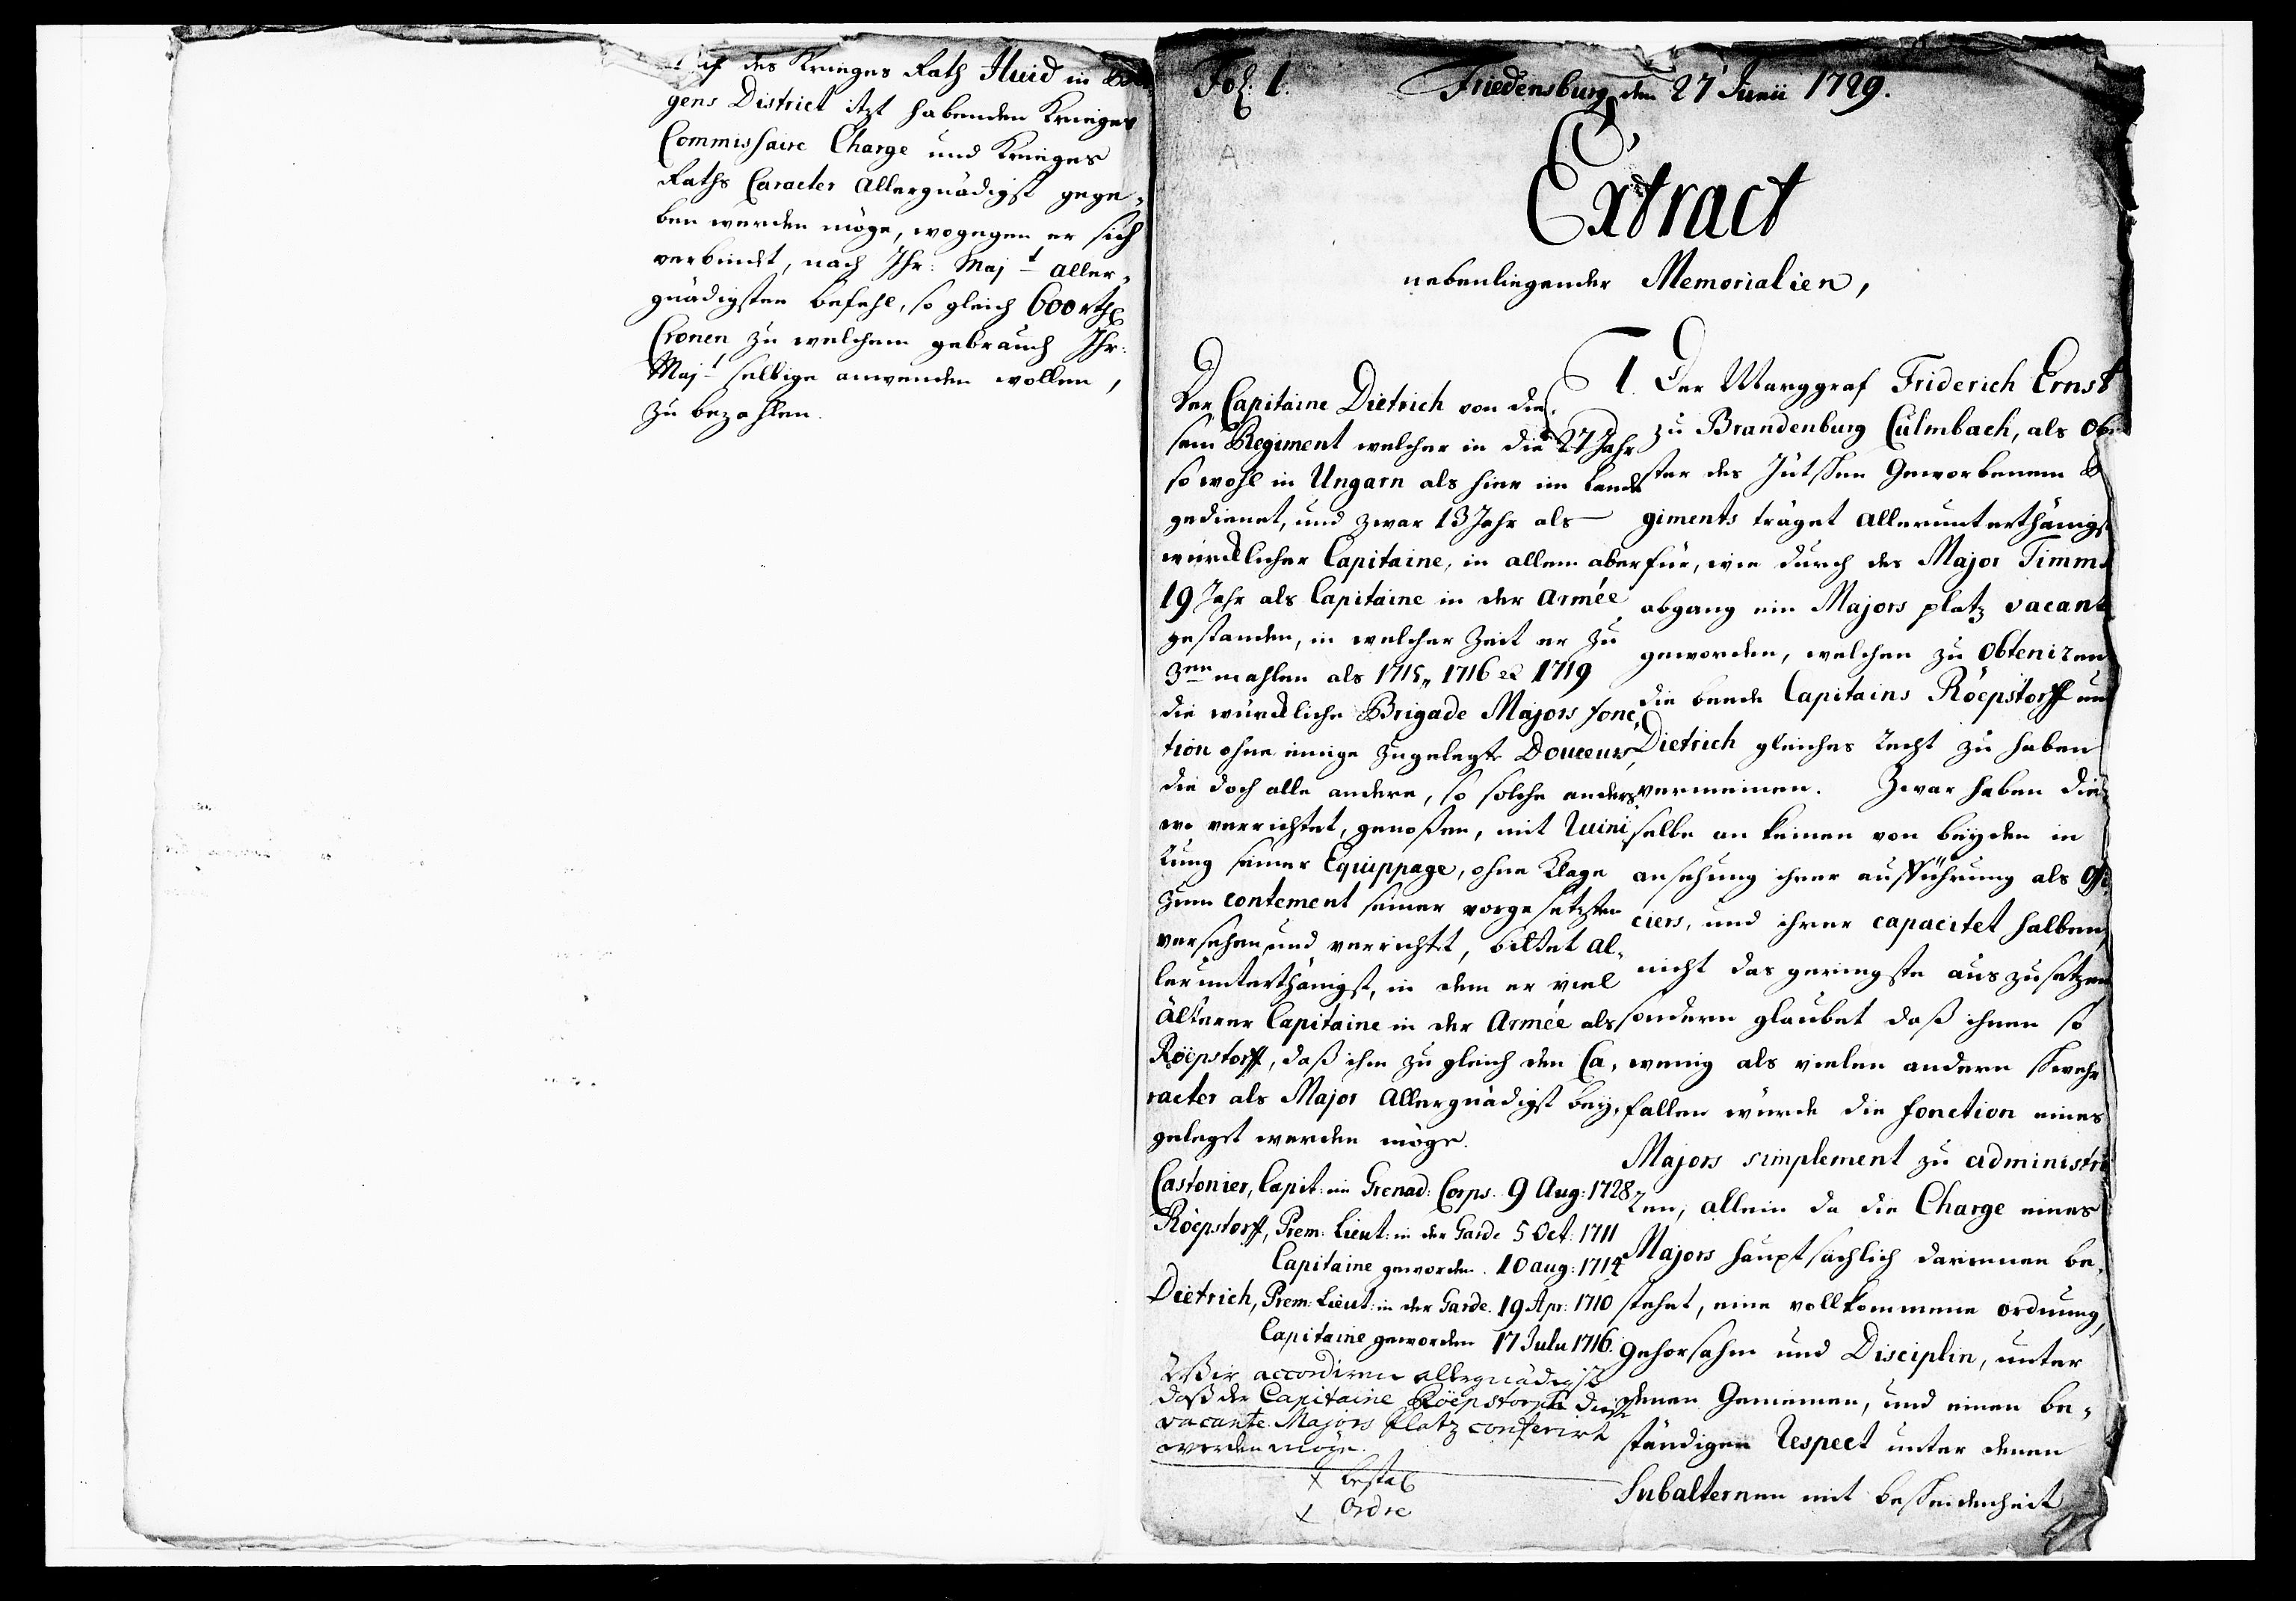 des Krieges Rath Hvid in
gens District itzt habenden Krieges
Commissaire Charge und Krieges
Raths Caracter Allergnädigst gege„
ben werden möge, wogegen er sich
verbindt, nach Ihr: Majt aller„
gnädigsten befehl, so gleich 600 rthl
Cronen zu welchem gebrauch Ihr:
Majt selbige anwenden wollen,
zu bezahlen.
Fol: 1.
Friedensburg den 27 Junii 1729.
Extract
nebenliegender Memorialien,
Der Capitaine Dietrich von die„
sem Regiment welcher in die 27 Jahr
so wohl in Ungarn als hier im Lande
gedienet, und zwar 13 Jahr als
würcklicher Capitaine, in allem aber
19 Jahr als Capitaine in der Armée
gestanden, in welcher Zeit er zu
3en mahlen als 1715„ 1716 et 1719
die würckliche Brigade Majors fonc„
tion ohne einige zugelegte Douceur,
die doch alle andere, so solche anders„
wo verrichtet, genoßen, mit Ruini„
rung seiner Equippage, ohne Klage
zum contement seiner vorgesetzten
versehen und verrichtet, bittet al„
lerunterthänigst, in dem er viel
älterer Capitaine in der Armée als
Röepstorff, daß ihm zu gleich den Ca„
racter als Major Allergnädigst bey„
geleget werden möge.
Castonier, Capit: im Grenad: Corps. 9 Aug: 1728
Röepstorff, Prem: Lieut: in der Garde 5 Oct: 1711
Capitaine geworden. 10 aug: 1714
Dietrich, Prem: Lieut: in der Garde. 19 Apr: 1710
Capitaine geworden 17 Julii 1716.
Wir accordiren allergnädigst
daß der Capitaine Röepstorff diese
vacante Majors Platz conferirt
werden möge.
x bestal
x Ordre
1. Der Marggraf Friderich Ernst
zu Brandenburg Culmbach, als Obri
ster des Jütschen Geworbenen Re
giments träget allerunterthänigst
für, wie durch des Major Timms
abgang ein Majors platz vacant
geworden, welchen zu obteniren
die beede Capitains Röepstorff und
Dietrich gleiches recht zu haben
vermeinen. Zwar haben die„
selbe an keinen von beyden in
ansehung ihrer aufführung als Offi„
ciers, und ihrer capacitet halben,
nicht das geringste auszusetzen
sondern glaubet daß ihnen so
wenig als vielen andern schwehr
fallen würde die fonction eines
Majors simplement zu administri
ren, allein da die Charge eines
Majors hauptsächlich darinnen be„
stehet, eine vollkommene ordnung,
gehorsahm und Disciplin, unter
denen Gemeinen, und einen be„
ständigen Respect unter denen
Subalternen mit bescheidenheit